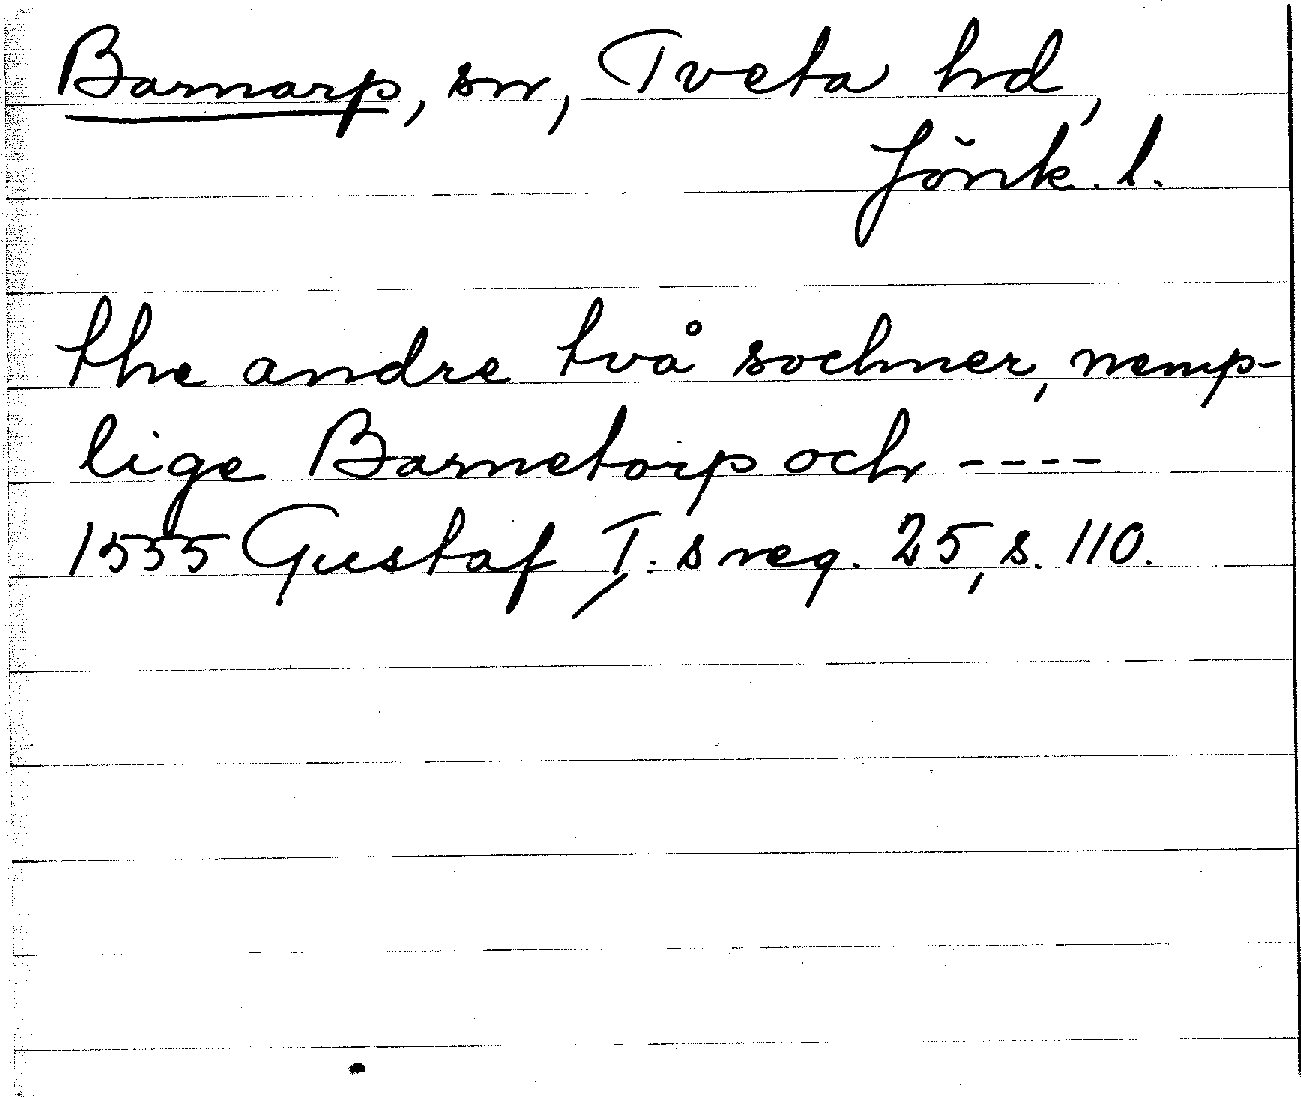 Barnarp, sn, Tveta hd,
Jönk. l.
the andre två sochner, nemp-
lige Barnetorp och ----
1555 Gustaf I:s reg. 25, s. 110.